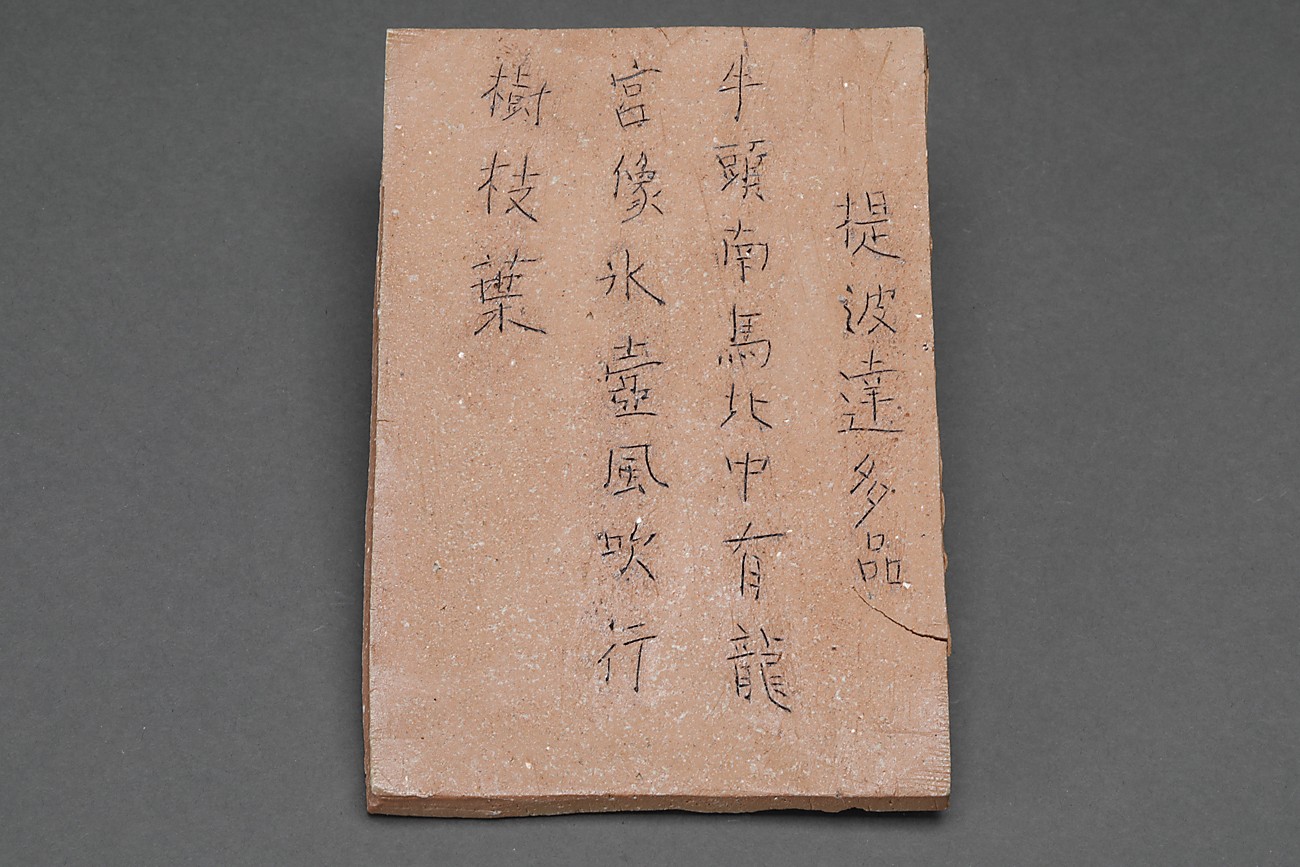 提波達多品
牛頭南馬北中有龍
宮像氷壺風吹行
樹枝葉